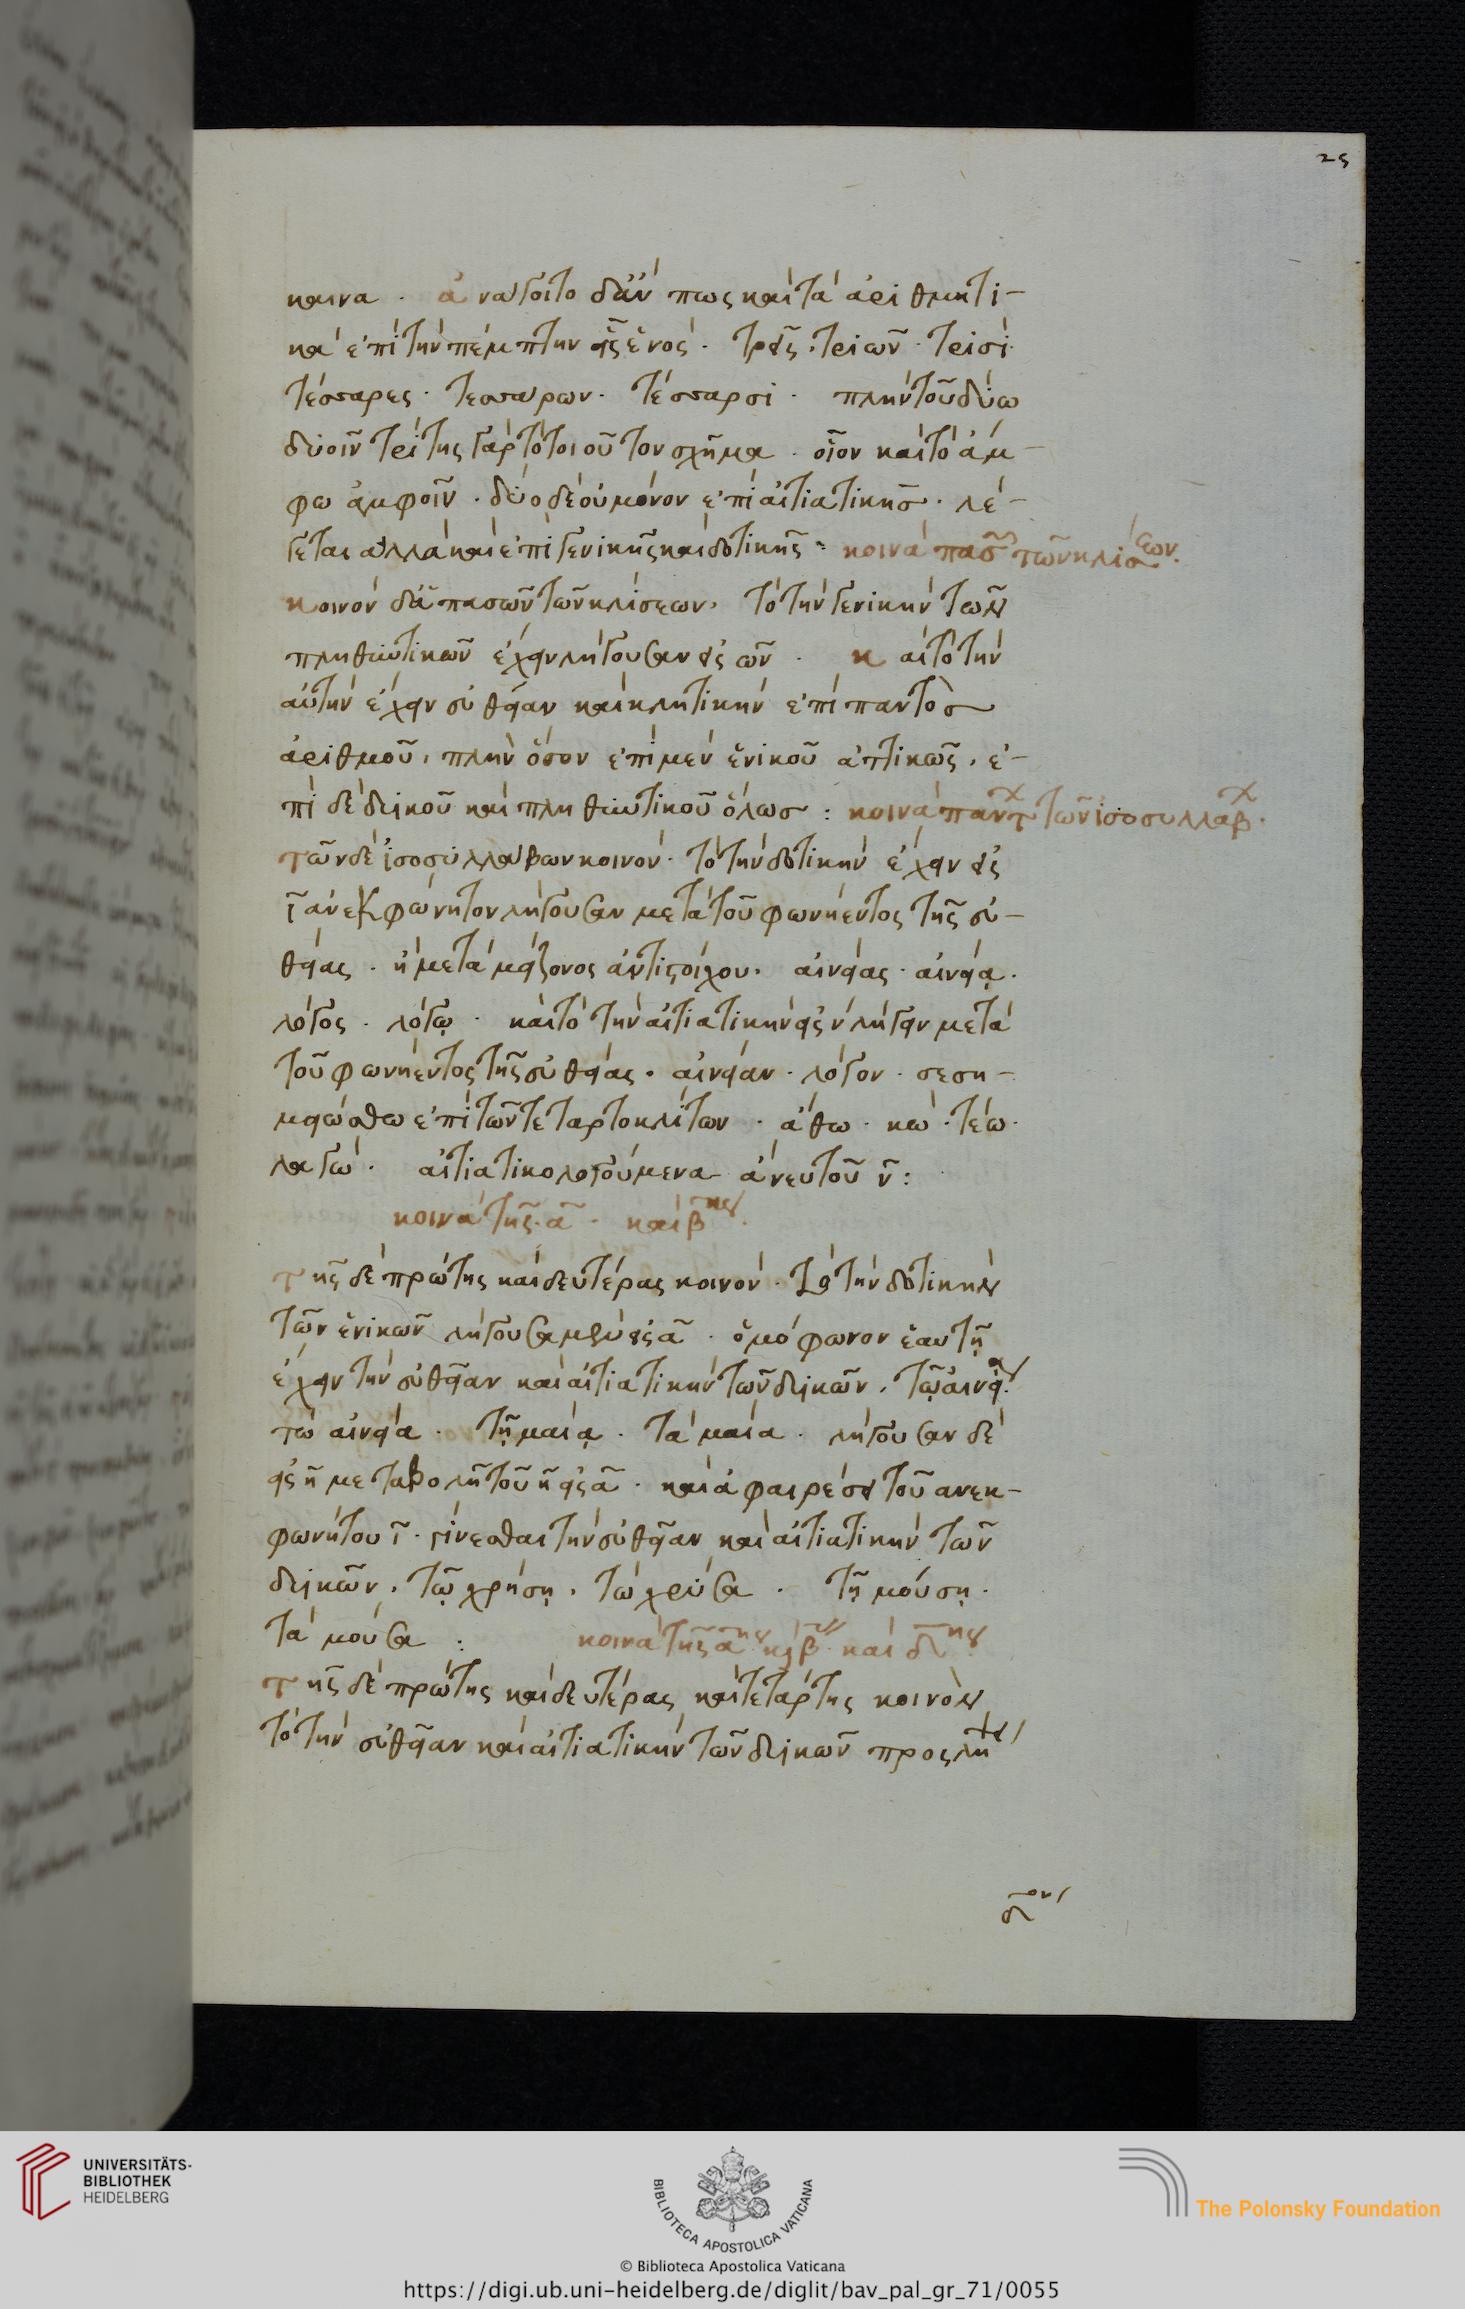 25
κοινά. ἀνάγοιτο δἄν πως καὶ τὰ ἀριθμητι-
κὰ ἐπὶ τὴν πέμπτην ἑνός. τρεῖς. τριῶν. τρισί.
τέσσαρες. τεσσάρων. τέσσαρσι. πλὴν τοῦ δύω
δυοῖν τρίτης γὰρ τὸ τοιοῦτον σχῆμα. οἷον καὶ τὸ ἄμ-
φω ἀμφοῖν. δύο δὲ οὐ μόνον ἐπὶ αἰτιατικῆς. λέ-
γεται ἀλλὰ καὶ ἐπὶ γενικῆς καὶ δοτικῆς: κοινὰ πασῶν τῶν κλίσεων.
κοινὸν δὲ πασῶν τῶν κλίσεων. τὸ τὴν γενικὴν τῶν
πληθυντικῶν ἔχειν λήγουσαν εἰς ων. καὶ τὸ τὴν
αὐτὴν ἔχειν εὐθεῖαν καὶ κλητικὴν ἐπὶ παντὸς
ἀριθμοῦ. πλὴν ὅσον ἐπὶ μὲν ἑνικοῦ ἀττικῶς. ἐ-
πὶ δὲ δυικοῦ καὶ πληθυντικοῦ ὅλως: κοινὰ παντ τῶν ἰσοσυλλαβ.
τῶν δὲ ἰσοσυλλάβων κοινόν. τὸ τὴν δοτικὴν ἔχειν εἰς
ῑ ἀνεκφώνητον λήγουσαν μετὰ τοῦ φωνήεντος τῆς εὐ-
θείας. ἢ μετὰ μείζονος ἀντιστοίχου. αἰνείας. αἰνείᾳ.
λόγος. λόγῳ. καὶ τὸ τὴν αἰτιατικὴν εἰς ν λήγειν μετὰ
τοῦ φωνήεντος τῆς εὐθείας. αἰνείαν. λόγον. σεση-
μειώσθω ἐπὶ τῶν τεταρτοκλίτων. ἄθω. κω. τέω.
λαγώ. αἰτιατικολογούμενα ἄνευ τοῦ ν̄:
κοινὰ τῆς ᾱ. καὶ β̄ης.
τῆς δὲ πρώτης καὶ δευτέρας κοινόν. τὸ τὴν δοτικὴν
τῶν ἑνικῶν λήγουσαν μὲν εἰς ᾱ. ὁμόφωνον ἑαυτῇ
ἔχειν τὴν εὐθεῖαν καὶ αἰτιατικὴν τῶν δυικῶν. τῷ αἰνείᾳ.
τὼ αἰνεία. τῇ μαίᾳ. τὰ μαία. λήγουσαν δὲ
εἰς η μεταβολῇ τοῦ η εἰς ᾱ. καὶ ἀφαιρέσει τοῦ ανεκ-
φωνήτου ῑ. γίνεσθαι τὴν εὐθεῖαν καὶ αἰτιατικὴν τῶν
δυικῶν. τῷ χρύσῃ. τὼ χρύσα. τῇ μούσῃ.
τὰ μούσα: κοινὰ τῆς ᾱης κ β̄ καὶ δ̄ης.
τῆς δὲ πρώτης καὶ δευτέρας καὶ τετάρτης κοινὸν
τὸ τὴν εὐθεῖαν καὶ αἰτιατικὴν τῶν δυικῶν προσλή
UNIVERSITÄTS-
BIBLIOTHEK
HEIDELBERG
BIBLIOTECA APOSTOLICA VATICANA
The Polonsky Foundation
© Biblioteca Apostolica Vaticana
https://digi.ub.uni-heidelberg.de/diglit/bav_pal_gr_71/0055